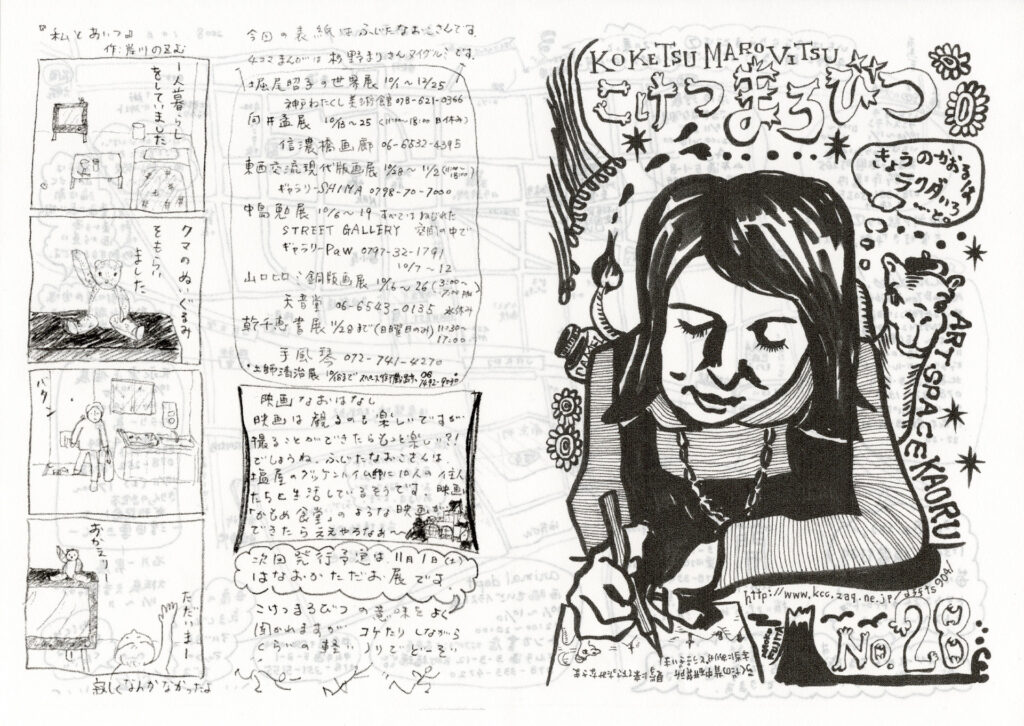 『私とあいつ』
作:岸川のぞむ
一人暮らし
をしていました
クマのぬいぐるみ
をもらい
ました
バタン
おかえりー
ただいまー
寂しくなんかなかったよ
今回の表紙はふじたなおこさんです。
4コマまんがは
堀尾昭子の世界展 10/1〜12/25
神戸わたくし美術館 078-621-0366
向井 展 10/13〜25 (11:00〜18:00 日休み)
信濃橋画廊 06-6532-4395
東西交流現代版画展
ギャラリーSHIMA 0798-70-7000
中島勉展 10/6〜19 すかてはねじれた
STREET GALLERY 空間の中で
ギャラリーPaw 0797-32-1791
10/7〜12
山口ヒロミ銅版画展 10/16〜26 (3:00〜7:00PM)
天音堂 06-6543-0135 水休み
乾千恵書展 11/28まで (日曜日のみ) 11:30〜17:00
手風琴 072-741-4270
土師清治展
映画なおはなし
映画は観るのも楽しいですが
撮ることができたらもっと楽しい?!
でしょうね、ふじたなおこさんは、
塩屋のグッゲンハイム邸に10人の住人
たちと生活しているそうです 映画
「かもめ食堂」のような映画が
できたらええやろなあ〜
次回発行予定は、11月1日(土)
はなおかただお展です
こけつまろびつの意味をよく
聞かれますが コケたりしながら
くらいの軽いノリでどーぞい
KOKETSU MAROVITSU
こけつまろびつ
きょうのかおるは
ラクダいろ
〜と。
ART SPACE KAORU
http://www.kcc.zaq.ne.jp/dfdts904/
No.28